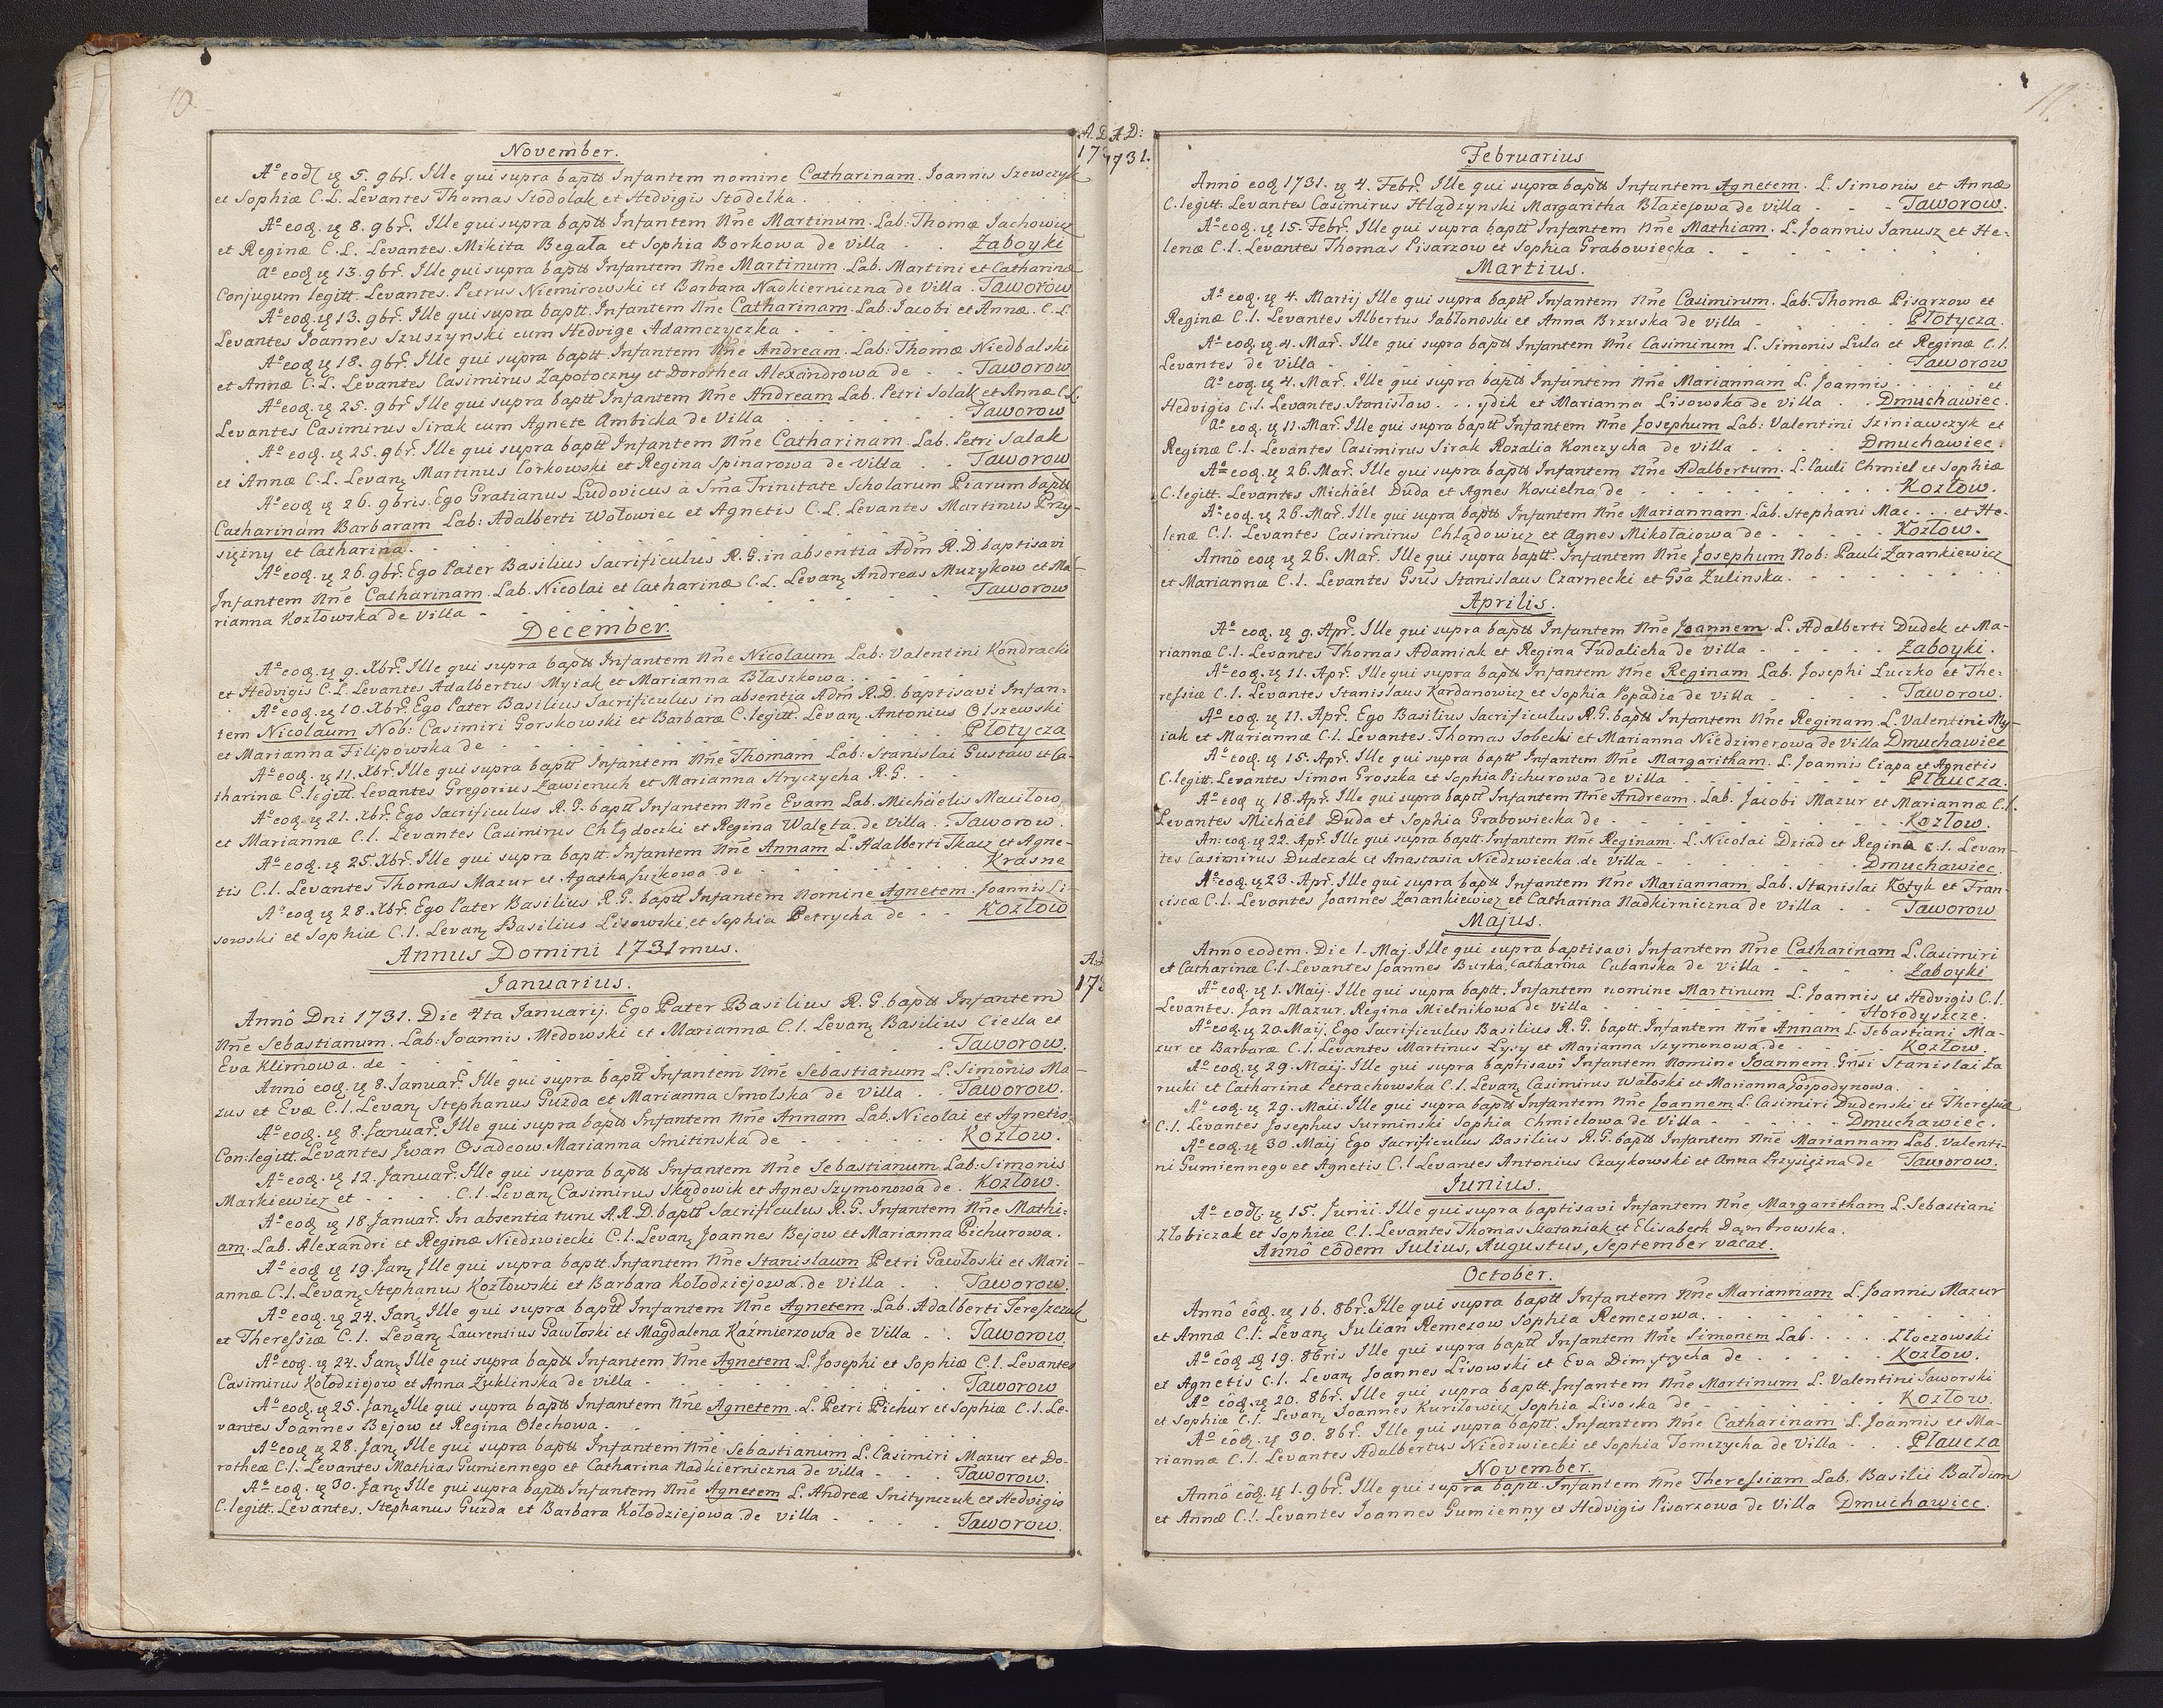 10.
November.
A° eodḷ ię 5. 9br̃. Ille qui supra baptt Infantem nomine Catharinam. Joannis Szewczyk
et Sophiæ C.L. Levantes Thomas Stodolak et Hedvigis Stodelka
A° eoḍ. ię 8. 9br̃. Ille qui supra baptt Infantem Nñe Martinum. Lab: Thomæ Jachowicz
et Reginæ C.L. Levantes. Mikita Begała et Sophia Borkowa de Villa . . Zaboyki
A° eoḍ ię 13. 9br̃. Ille qui supra baptt Infantem Nñe Martinum. Lab. Martini et Catharinæ
Conjugum legitt. Levantes. Petrus Niemirowski et Barbara Nadkierniczna de Villa . Taworow
A° eoḍ. ię 13. 9br̃. Ille qui supra baptt. Infantem Nñe Catharinam. Lab: Jacobi et Annæ. C.L.
Levantes Joannes Szuszynski cum Hedvige Adamczyczka
A° eoḍ ię 18. 9br̃. Ille qui supra baptt Infantem Nñe Andream. Lab: Thomæ Niedbalski
et Annæ C.L. Levantes Casimirus Zapotoczny et Dorothea Alexandrowa de . . Taworow
A° eoḍ. ię 25. 9br̃ Ille qui supra baptt Infantem Nñe Andream Lab. Petri Solak et Annæ C.L.
Levantes Casimirus Sirak cum Agnete Ambicka de Villa . . Taworow
A° eoḍ. ię 25. 9br̃. Ille qui supra baptt Infantem Nñe Catharinam. Lab. Petri Salak
et Annæ C.L. Levanţ Martinus Corkowski et Regina Spinarowa de Villa . . Taworow
A° eoḍ ię 26. 9bris. Ego Gratianus Ludovicus à Sm̃a Trinitate Scholarum Piarum baptt
Catharinam Barbaram Lab: Adalberti Wołowiec et Agnetis C.L. Levantes Martinus Przy-
sięzny et Catharina.
A° eoḍ. ię 26. 9br̃. Ego Pater Basilius Sacrificulus R.G. in absentia Adm̃ R.D baptisavi
Infantem Nñe Catharinam. Lab. Nicolai et Catharinæ C.L. Levanţ Andreas Muzykow et Ma-
rianna Kozłowska de Villa . . Taworow
December.
A° eoḍ. ię 9. Xbr̃. Ille qui supra baptt Infantem Nñe Nicolaum Lab: Valentini Kondracki
et Hedvigis C.L. Levantes Adalbertus Myiak et Marianna Błaszkowa.
A° eoḍ. ię 10. Xbr̃. Ego Pater Basilius Sacrificulus in absentia Adm̃ R.D. baptisavi Infan-
tem Nicolaum Nob: Casimiri Gorskowski et Barbaræ C. legitt. Levanţ. Antonius Olszewski
et Marianna Filipowska de . . Płotycza
A° eoḍ. ię 11. Xbr̃. Ille qui supra baptt Infantem Nñe Thomam Lab: Stanislai Gustaw et Ca-
tharinæ C. legitt. Levantes Gregorius Zawieruch et Marianna Hryczycha R.G.
A° eoḍ. ię 21. Xbr̃. Ego Sacrificulus R.G. baptt Infantem Nñe Evam Lab. Michäelis Maciłow
et Mariannæ C.l. Levantes Casimirus Chłądoczki et Regina Walęta, de Villa . Taworow.
A° eoḍ. ię 25. Xbr̃. Ille qui supra baptt. Infantem Nñe Annam L. Adalberti Tkacz et Agne-
tis C.l. Levantes Thomas Mazur et Agatha Juzkowa de . . Krasne
A° eoḍ ię 28. Xbr̃. Ego Pater Basilius R.G. baptt Infantem Nomine Agnetem. Joannis Li-
sowski et Sophiæ C.l. Levanţ Basilius Lisowski et Sophia Petrycha de . . Kozłow
Annus Domini 1731mus.
Januarius.
Annô Dni 1731. Die 4ta Januarij. Ego Pater Basilius R.G. baptt Infantem
Nñe Sebastianum. Lab: Joannis Medowski et Mariannæ C.l. Levanţ Basilius Ciesla et
Eva Klimowa. de . . Taworow.
Annô eoḍ. ię 8. Januar̃. Ille qui supra baptt Infantem Nñe Sebastianum L. Simonis Ma-
zus et Evæ C.l. Levanţ Stephanus Guzda et Marianna Smolska de Villa . . Taworow.
A° eoḍ. ię 8. Januar̃. Ille qui supra baptt Infantem Nñe Annam Lab. Nicolai et Agnetis
Con: legitt. Levantes Jwan Osadcow Marianna Smitinska de . . Kozłow.
A° eoḍ. ię 12. Januar̃. Ille qui supra baptt Infantem Nñe Sebastianum Lab: Simonis
Markiewicz et . . . . C.l. Levanţ Casimirus Skądowik et Agnes Szymonowa de . Kozłow.
A° eoḍ ię 18 Januar̃. In absentia tunc A.R.D. baptt Sacrificulus R.G. Infantem Nñe Mathi-
am. Lab. Alexandri et Reginæ Niedzwiecki C.l. Levanţ Joannes Bejow et Marianna Pichurowa.
A° eoḍ ię 19. Janţ Jlle qui supra baptt. Infantem Nñe Stanislaum Petri Gawłoski et Mari-
annæ C.l. Levanţ Stephanus Kozłowski et Barbara Kołodziejowa de Villa . . Taworow.
A° eoḍ. ię 24. Janţ Ille qui supra baptt Infantem Nñe Agnetem. Lab. Adalberti Tereszczuk
et Theressiæ C.l. Levanţ Laurentius Gawłoski et Magdalena Kaźmierzowa de Villa . . Taworow.
A° eoḍ. ię 24. Janţ Ille qui supra baptt Infantem Nñe Agnetem L. Josephi et Sophiæ C.l. Levantes
Casimirus Kołodziejow et Anna Zuklinska de Villa . . Taworow
A° eoḍ. ię 25. Janţ Ille qui supra baptt Infantem Nñe Agnetem. L. Petri Pichur et Sophiæ C.l. Le-
vantes Joannes Bejow et Regina Olechowa.
A° eoḍ ię 28. Janţ Ille qui supra baptt Infantem Nñe Sebastianum L. Casimiri Mazur et Do-
rotheæ C.l. Levantes Mathias Gumiennego et Catharina Nadkierniczna de Villa . . Taworow.
A° eoḍ. ię 30. Janţ Ille qui supra baptt Infantem Nñe Agnetem L. Andreæ Snitynczuk et Hedvigis
C. legitt. Levantes. Stephanus Guzda et Barbara Kołodziejowa de Villa . . Taworow.
A.D
17
A.D
173
11.
A.D:
1731.
Februarius
Annô eoḍ 1731. ię 4. Febr̃. Ille qui supra baptt Infantem Agnetem. L. Simonis et Annæ
C. legitt. Levantes Casimirus Hlądzynski Margaritha Błażejowa de Villa . . Taworow.
A° eoḍ. ię 15. Febr̃. Ille qui supra baptt Infantem Nñe Mathiam. L. Joannis Janusz et He-
lenæ C.l. Levantes Thomas Pisarzow et Sophia Grabowiecka
Martius.
A° eoḍ. ię 4. Martij Ille qui supra baptt Infantem Nñe Casimirum. Lab. Thomæ Pisarzow et
Reginæ C.l. Levantes Albertus Jabłonoski et Anna Brzuska de Villa . . Płotycza.
A° eoḍ. ię 4. Mar̃. Ille qui supra baptt Infantem Nñe Casimirum L. Simonis Lula et Reginæ C.l.
Levantes de Villa . . Taworow
A° eoḍ. ię 4. Mar̃. Ille qui supra baptt Infantem Nñe Mariannam L. Joannis . . . . et
Hedvigis C.l. Levantes. Stanisłow . . . ydik et Marianna Lisowska de Villa . . Dmuchawiec.
A° eoḍ. ię 11. Mar̃. Ille qui supra baptt Infantem Nñe Josephum Lab: Valentini Sziniawczyk et
Reginæ C.l. Levantes Casimirus Sirak Rozalia Konczycha de Villa . . Dmuchawiec.
A° eoḍ. ię 26. Mar̃. Ille qui supra baptt Infantem Nñe Adalbertum. L. Pauli Chmiel et Sophiæ
C. legitt. Levantes Michäél Duda et Agnes Koscielna de . . Kozłow.
A° eoḍ. ię 26. Mar̃. Ille qui supra baptt Infantem Nñe Mariannam. Lab. Stephani Mac . . . et He-
lenæ C.l. Levantes Casimirus Chłądowicz et Agnes Mikołaiowa de . . Kozłow.
Annô eoḍ ię 26. Mar̃. Ille qui supra baptt Infantem Nñe Josephum Nob: Pauli Zarankiewicz
et Mariannæ C.l. Levantes Gsũs Stanislaus Czarnecki et Gs̃a Zulinska.
Aprilis.
A° eoḍ. ię 9. Apr̃. Ille qui supra baptt Infantem Nñe Joannem. L. Adalberti Dudek et Ma-
riannæ C.l. Levantes Thomas Adamiak et Regina Fudalicha de Villa . . Zaboyki.
A° eoḍ. ię 11. Apr̃. Ille qui supra baptt Infantem Nñe Reginam Lab. Josephi Luczko et The-
ressiæ C.l. Levantes Stanislaus Kardanowicz et Sophia Popadia de Villa . . Taworow.
A° eoḍ. ię 11. Apr̃. Ego Basilius Sacrificulus R.G. baptt Infantem Nñe Reginam. L. Valentini My-
iak et Mariannæ C.l. Levantes. Thomas Sobecki et Marianna Niedzinerowa de Villa Dmuchawiec
A° eoḍ. ię 15. Apr̃. Ille qui supra baptt Infantem Nñe Margaritham. L. Joannis Ciapa et Agnetis
C. legitt. Levantes Simon Groszka et Sophia Pichurowa de Villa . . Płaucza.
A° eoḍ ię 18. Apr̃. Ille qui supra baptt Infantem Nñe Andream. Lab. Jacobi Mazur et Mariannæ C.l.
Levantes Michäél Duda et Sophia Grabowiecka de . . Kozłow.
An: eoḍ ię 22. Apr̃. Ille qui supra baptt. Infantem Nñe Reginam. L. Nicolai Dziad et Reginæ C.l. Levan-
tes Casimirus Dudczak et Anastasia Niedzwiecka de Villa . . Dmuchawiec.
A° eoḍ. ię 23. Apr̃. Ille qui supra baptt Infantem Nñe Mariannam. Lab. Stanislai Kotyk et Fran-
ciscæ C.l. Levantes Joannes Zarankiewicz et Catharina Nadkirniczna de Villa . . Taworow
Majus.
Anno eodem. Die 1. Maj. Ille qui supra baptisavi Infantem Nñe Catharinam L. Casimiri
et Catharinæ C.l. Levantes Joannes Burka, Catharina Culanska de Villa . . Zaboyki
A° eoḍ. ię 1. Maij. Ille qui supra baptt. Infantem nomine Martinum L. Joannis et Hedvigis C.l.
Levantes. Jan Mazur. Regina Mielnikowa de Villa . . Horodyszcze.
A° eoḍ. ię 20. Maij. Ego Sacrificulus Basilius R.G. baptt. Infantem Nñe Annam L. Sebastiani Ma-
zur et Barbaræ C.l. Levantes Martinus Łysy et Marianna Szymonowa. de . . Kozłow.
A° eoḍ. ię 29. Maij. Ille qui supra baptisavi Infantem Nomine Joannem. Gñsi Stanislai Za
rucki et Catharinæ Petrachowska C.l. Levanţ Casimirus Wałoski et Marianna Gospodynowa.
A° eoḍ. ię 29. Maii. Ille qui supra baptt Infantem Nñe Joannem L. Casimiri Dudenski et Theressiæ
C.l. Levantes Josephus Surminski Sophia Chmielowa de Villa . . Dmuchawiec.
A° eoḍ. ię 30. Maij Ego Sacrificulus Basilius R.G. baptt Infantem Nñe Mariannam Lab. Valenti-
ni Gumiennego et Agnetis C.l. Levantes Antonius Czaykowski et Anna Przysiężna de Taworow.
Junius.
A° eodḷ. ię 15. Junii. Ille qui supra baptisavi Infantem Nñe Margaritham L. Sebastiani
Złobiczak et Sophiæ C.l. Levantes Thomas Skataniak et Elisabeth Dąmbrowska.
Annô eôdem Julius, Augustus, September vacat.
October.
Annô eôḍ. ię 16. 8br̃. Ille qui supra baptt Infantem Nñe Mariannam L. Joannis Mazur
et Annæ C.l. Levanţ Julian Remezow Sophia Remezowa.
A° eôḍ ię 19. 8bris Ille qui supra baptt Infantem Nñe Simonem Lab. . . . Złoczowski
et Agnetis C.l. Levanţ Joannes Lisowski et Eva Dimytrycha de . . Kozłow.
A° eôḍ. ię 20. 8br̃. Ille qui supra baptt. Infantem Nñe Martinum L. Valentini Jaworski
et Sophiæ C.l. Levanţ Joannes Kuriłowicz Sophia Lisoska de . . Kozłow.
A° eôḍ. ię 30. 8br̃. Ille qui supra baptt. Infantem Nñe Catharinam L. Joannis et Ma-
riannæ C.l. Levantes Adalbertus Niedzwiecki et Sophia Tomczycha de Villa . . Płaucza
November.
Annô eôḍ. ię 1. 9br̃. Ille qui supra baptt. Infantem Nñe Theressiam Lab. Basilii Bałdun
et Annæ C.l. Levantes Joannes Gumienny et Hedvigis Pisarzowa de Villa Dmuchawiec.